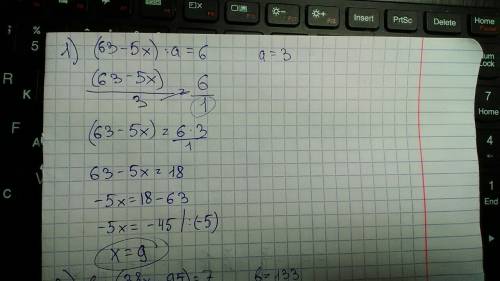 1) (63-5x) : a = 6    a = 3
(63-5x)/3 = 6/1
(63-5x) = 6·3/1
63-5x = 18
-5x = 18-63
-5x = -45 |:(-5)
x = 9
(38x 95) = 7    b = 133
Insert
PrtSc
Delete
Home
Num Lock
7 Home
4
1 End
%
5
R
K
F
A
C